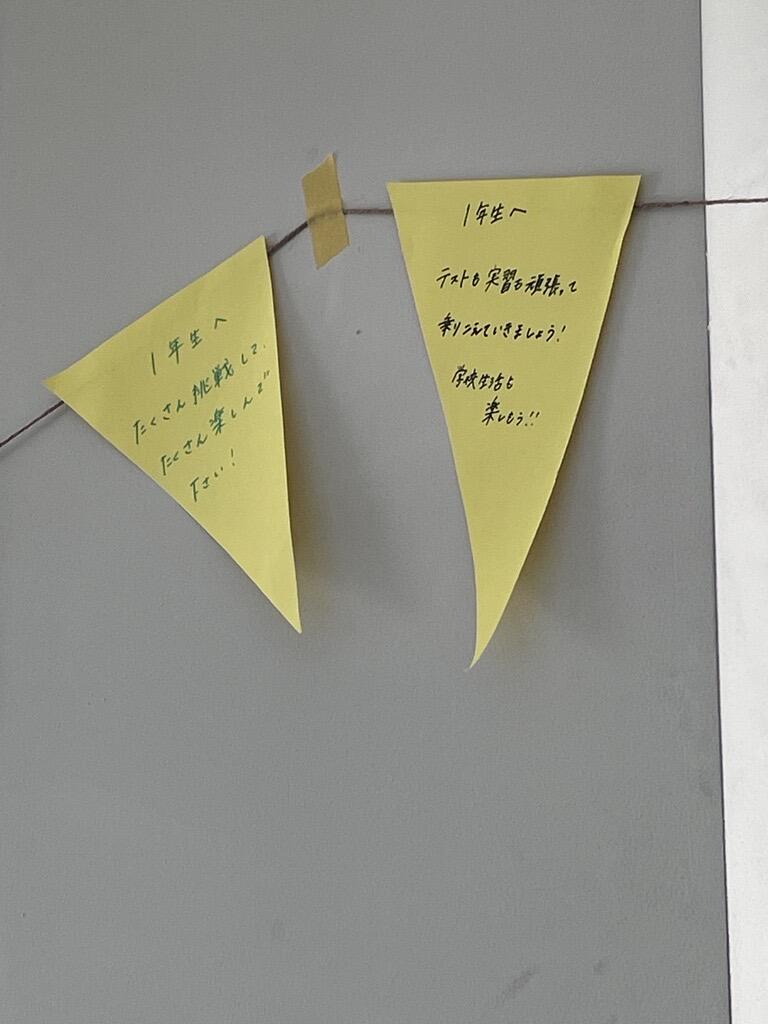 1年生へ
たくさん挑戦して、
たくさん楽しんで
下さい!
1年生へ
テストも実習も頑張って
乗りこえていきましょう!
学校生活も
楽しもう!!